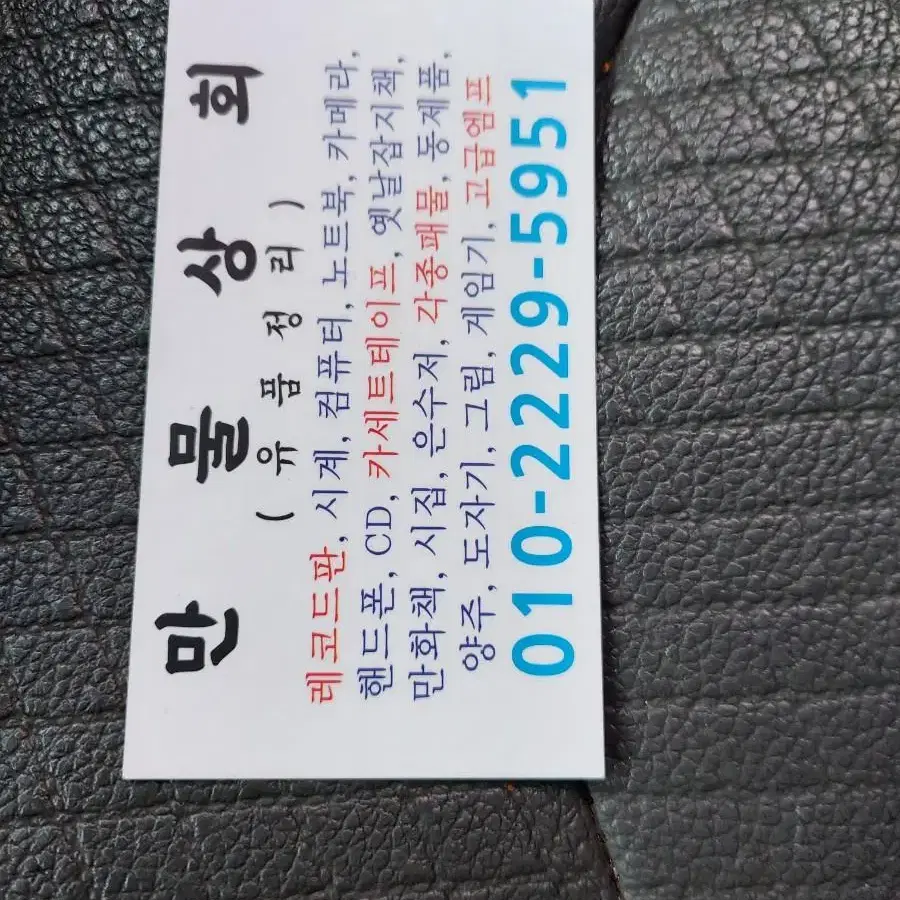 만물상회
(유품정리)
레코드판, 시계, 컴퓨터, 노트북, 카메라,
핸드폰, CD, 카세트테이프, 옛날잡지책,
만화책, 시집, 은수저, 각종패물, 동제품,
양주, 도자기, 그림, 게임기, 고급엠프
010-2229-5951